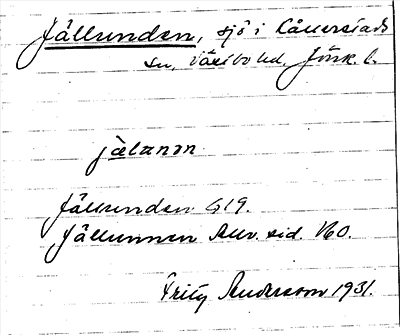 Jällunden, sjö i Kållerstads
sn, Västbo hd, Jönk. l.
jälunən
Jällunden G19.
Jällunnen Allv. sid. 160.
Fritz Andersson 1931.